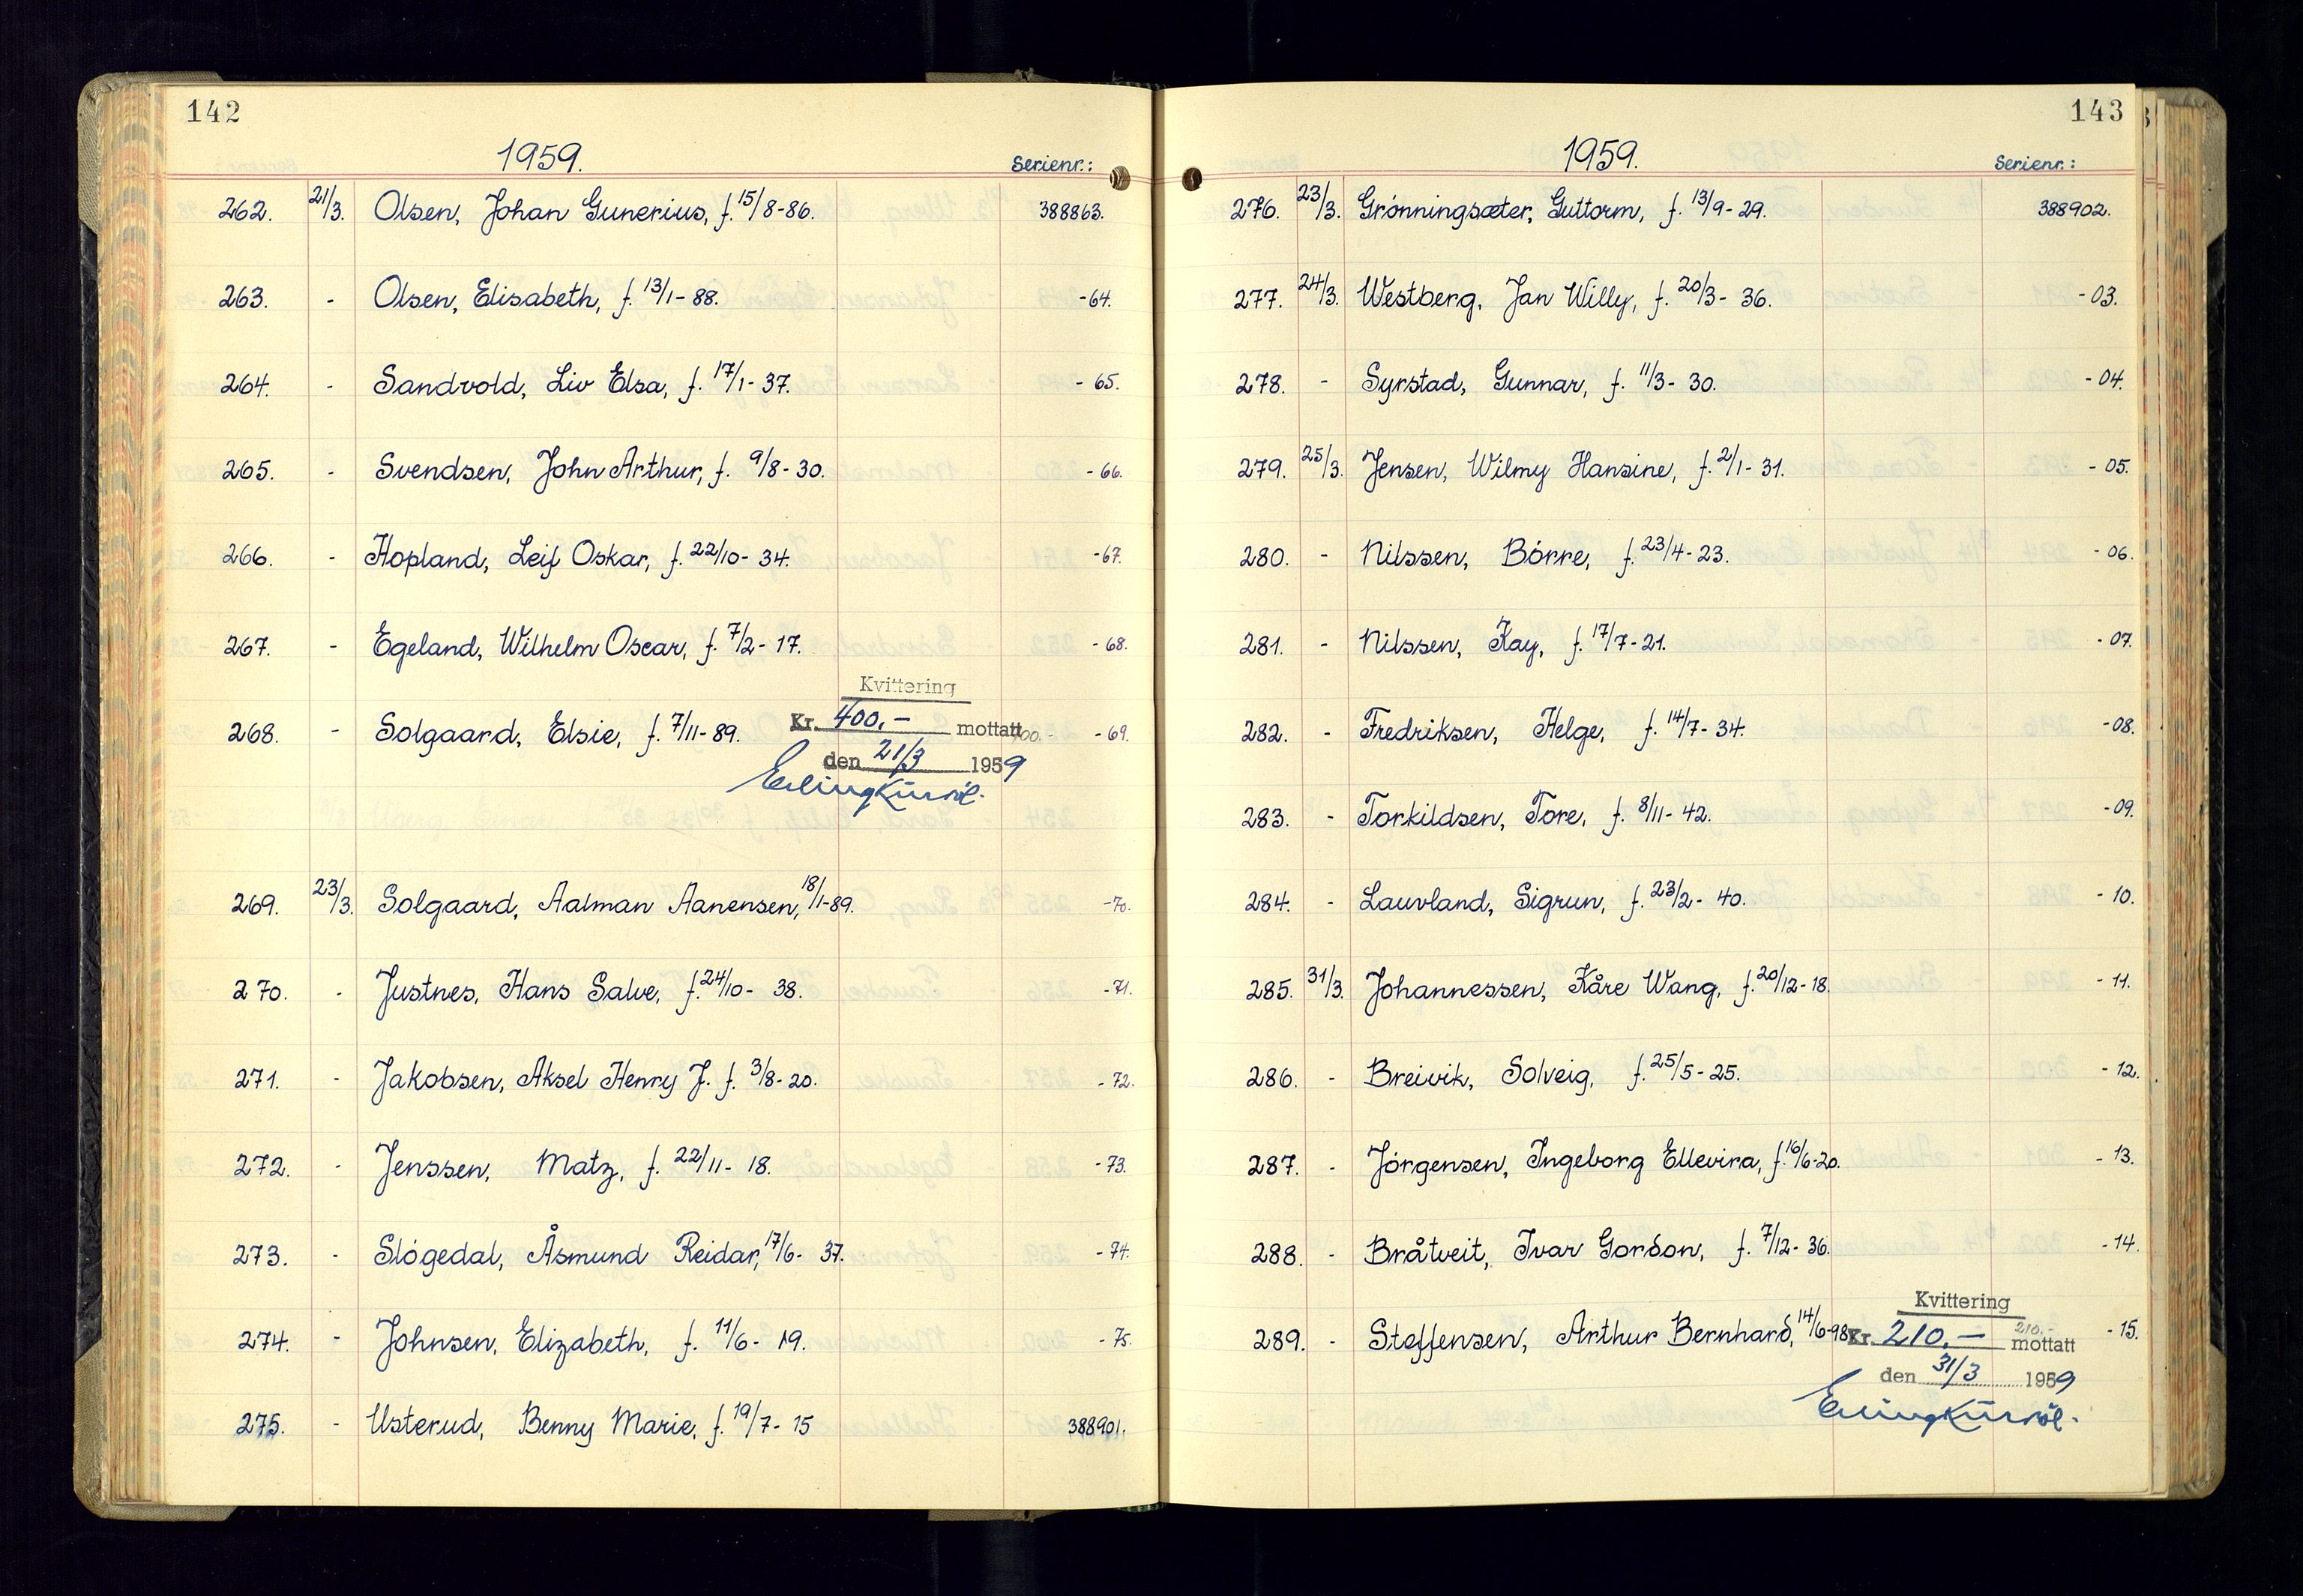 142
1959.
Serienr.:
262. 21/3. Olsen, Johan Gunerius, f. 15/8-86. 388863.
263. - Olsen, Elisabeth, f. 13/1-88. -64.
264. - Sandvold, Liv Elsa, f. 17/1-37. -65.
265. - Svendsen, John Arthur, f. 9/8-30. -66.
266. - Hopland, Leif Oskar, f. 22/10-34. -67.
267. - Egeland, Wilhelm Oscar, f. 7/2-17. -68.
Kvittering
268. - Solgaard, Elsie, f. 7/11-89. Kr. 400.- mottatt 400.- -69.
den 21/3 1959
269. 23/3. Solgaard, Aalman Aanensen, 18/1-89. -70.
270. - Justnes, Hans Salve, f. 24/10-38. -71.
271. - Jakobsen, Aksel Henry J. f. 3/8-20. -72.
272. - Jenssen, Matz, f. 22/11-18. -73.
273. - Slögedal, Åsmund Reidar, 17/6-37. -74.
274. - Johnsen, Elizabeth, f. 11/6-19. -75.
275. - Usterud, Benny Marie, f. 19/7-15 388901.
143
1959.
Serienr.:
276. 23/3. Grönningsæter, Guttorm, f. 13/9-29. 388902.
277. 24/3. Westberg, Jan Willy, f. 20/3-36. -03.
278. - Syrstad, Gunnar, f. 11/3-30. -04.
279. 25/3. Jensen, Wilmy Hansine, f. 2/1-31. -05.
280. - Nilssen, Börre, f. 23/4-23. -06.
281. - Nilssen, Kay, f. 17/7-21. -07.
282. - Fredriksen, Helge, f. 14/7-34. -08.
283. - Torkildsen, Tore, f. 8/11-42. -09.
284. - Lauvland, Sigrun, f. 23/2-40. -10.
285. 31/3. Johannessen, Kåre Wang, f. 20/12-18. -11.
286. - Breivik, Solveig, f. 25/5-25. -12.
287. - Jörgensen, Ingeborg Ellevira, f. 16/6-20. -13.
288. - Bråtveit, Ivar Gordon, f. 7/12-36. -14.
Kvittering
289. - Steffensen, Arthur Bernhard, 14/6-98 Kr. 210.- 210.- mottatt -15.
den 31/3 1959